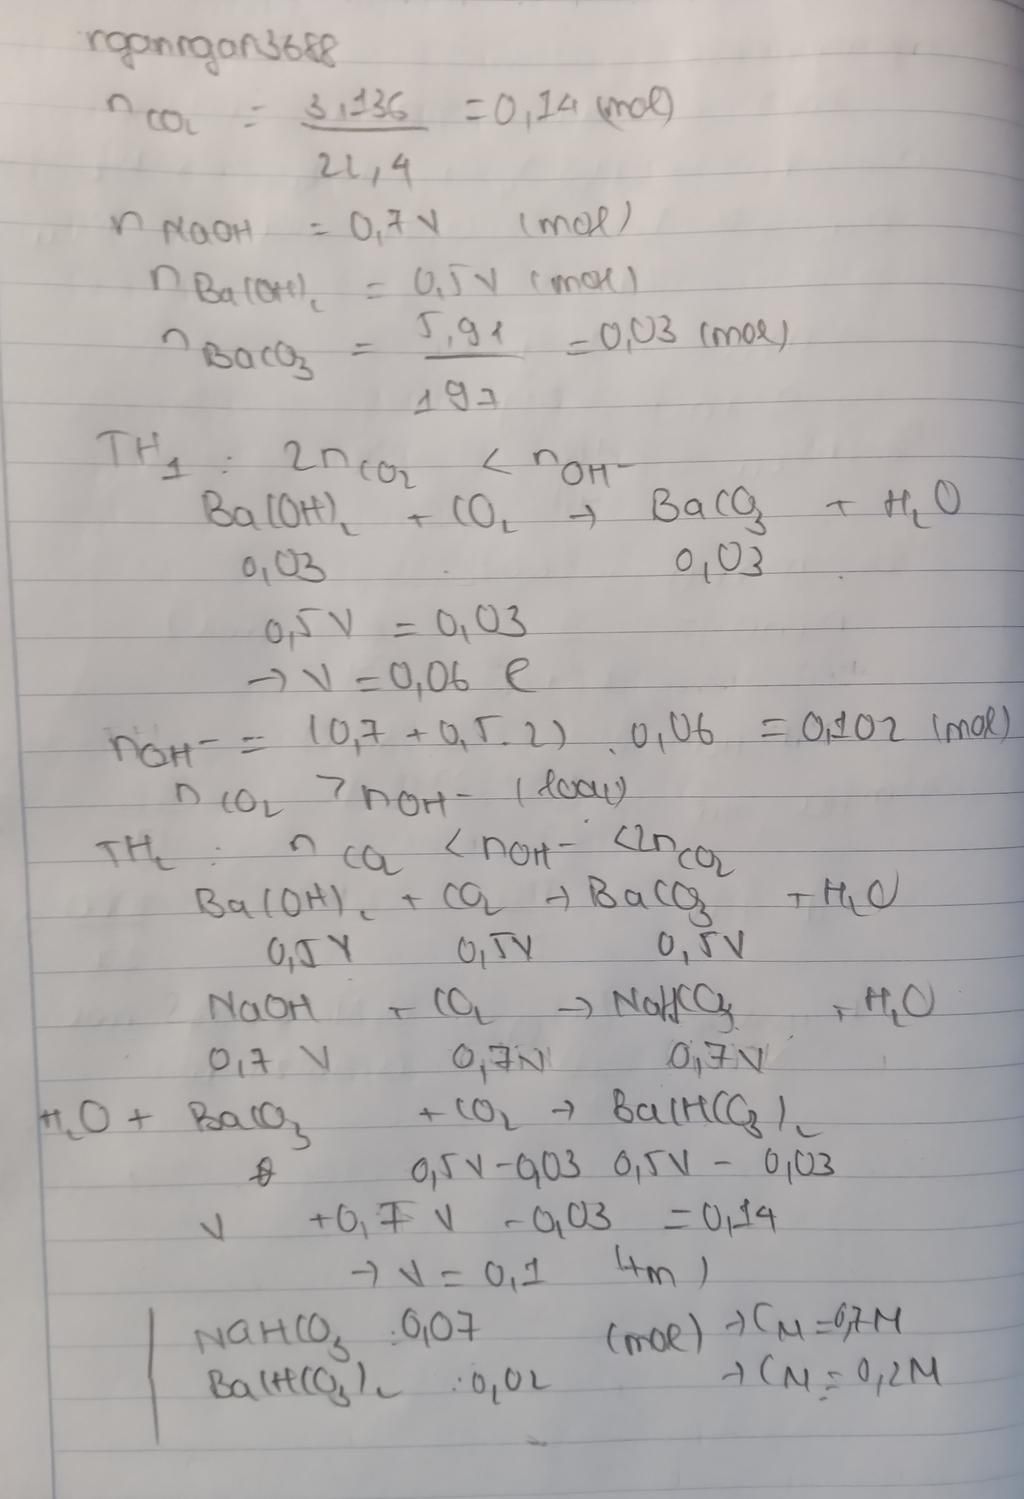 nganngan3688
nCO2 = 3,136/22,4 = 0,14 (mol)
nNaOH = 0,7V (mol)
nBa(OH)2 = 0,5V (mol)
nBaCO3 = 5,91/197 = 0,03 (mol)
TH1 : 2nCO2 < nOH-
Ba(OH)2 + CO2 → BaCO3 + H2O
0,03 0,03
0,5V = 0,03
→ V = 0,06 l
nOH- = (0,7 + 0,5.2) . 0,06 = 0,102 (mol)
nCO2 > nOH- (loại)
TH2 : nCO2 < nOH- < 2nCO2
Ba(OH)2 + CO2 → BaCO3 + H2O
0,5V 0,5V 0,5V
NaOH + CO2 → NaHCO3 + H2O
0,7V 0,7V 0,7V
H2O + BaCO3 + CO2 → Ba(HCO3)2
0,5V - 0,03 0,5V - 0,03
V + 0,7V - 0,03 = 0,14
→ V = 0,1 (tm)
NaHCO3 : 0,07 (mol) → CM = 0,7M
Ba(HCO3)2 : 0,02 → CM = 0,2M